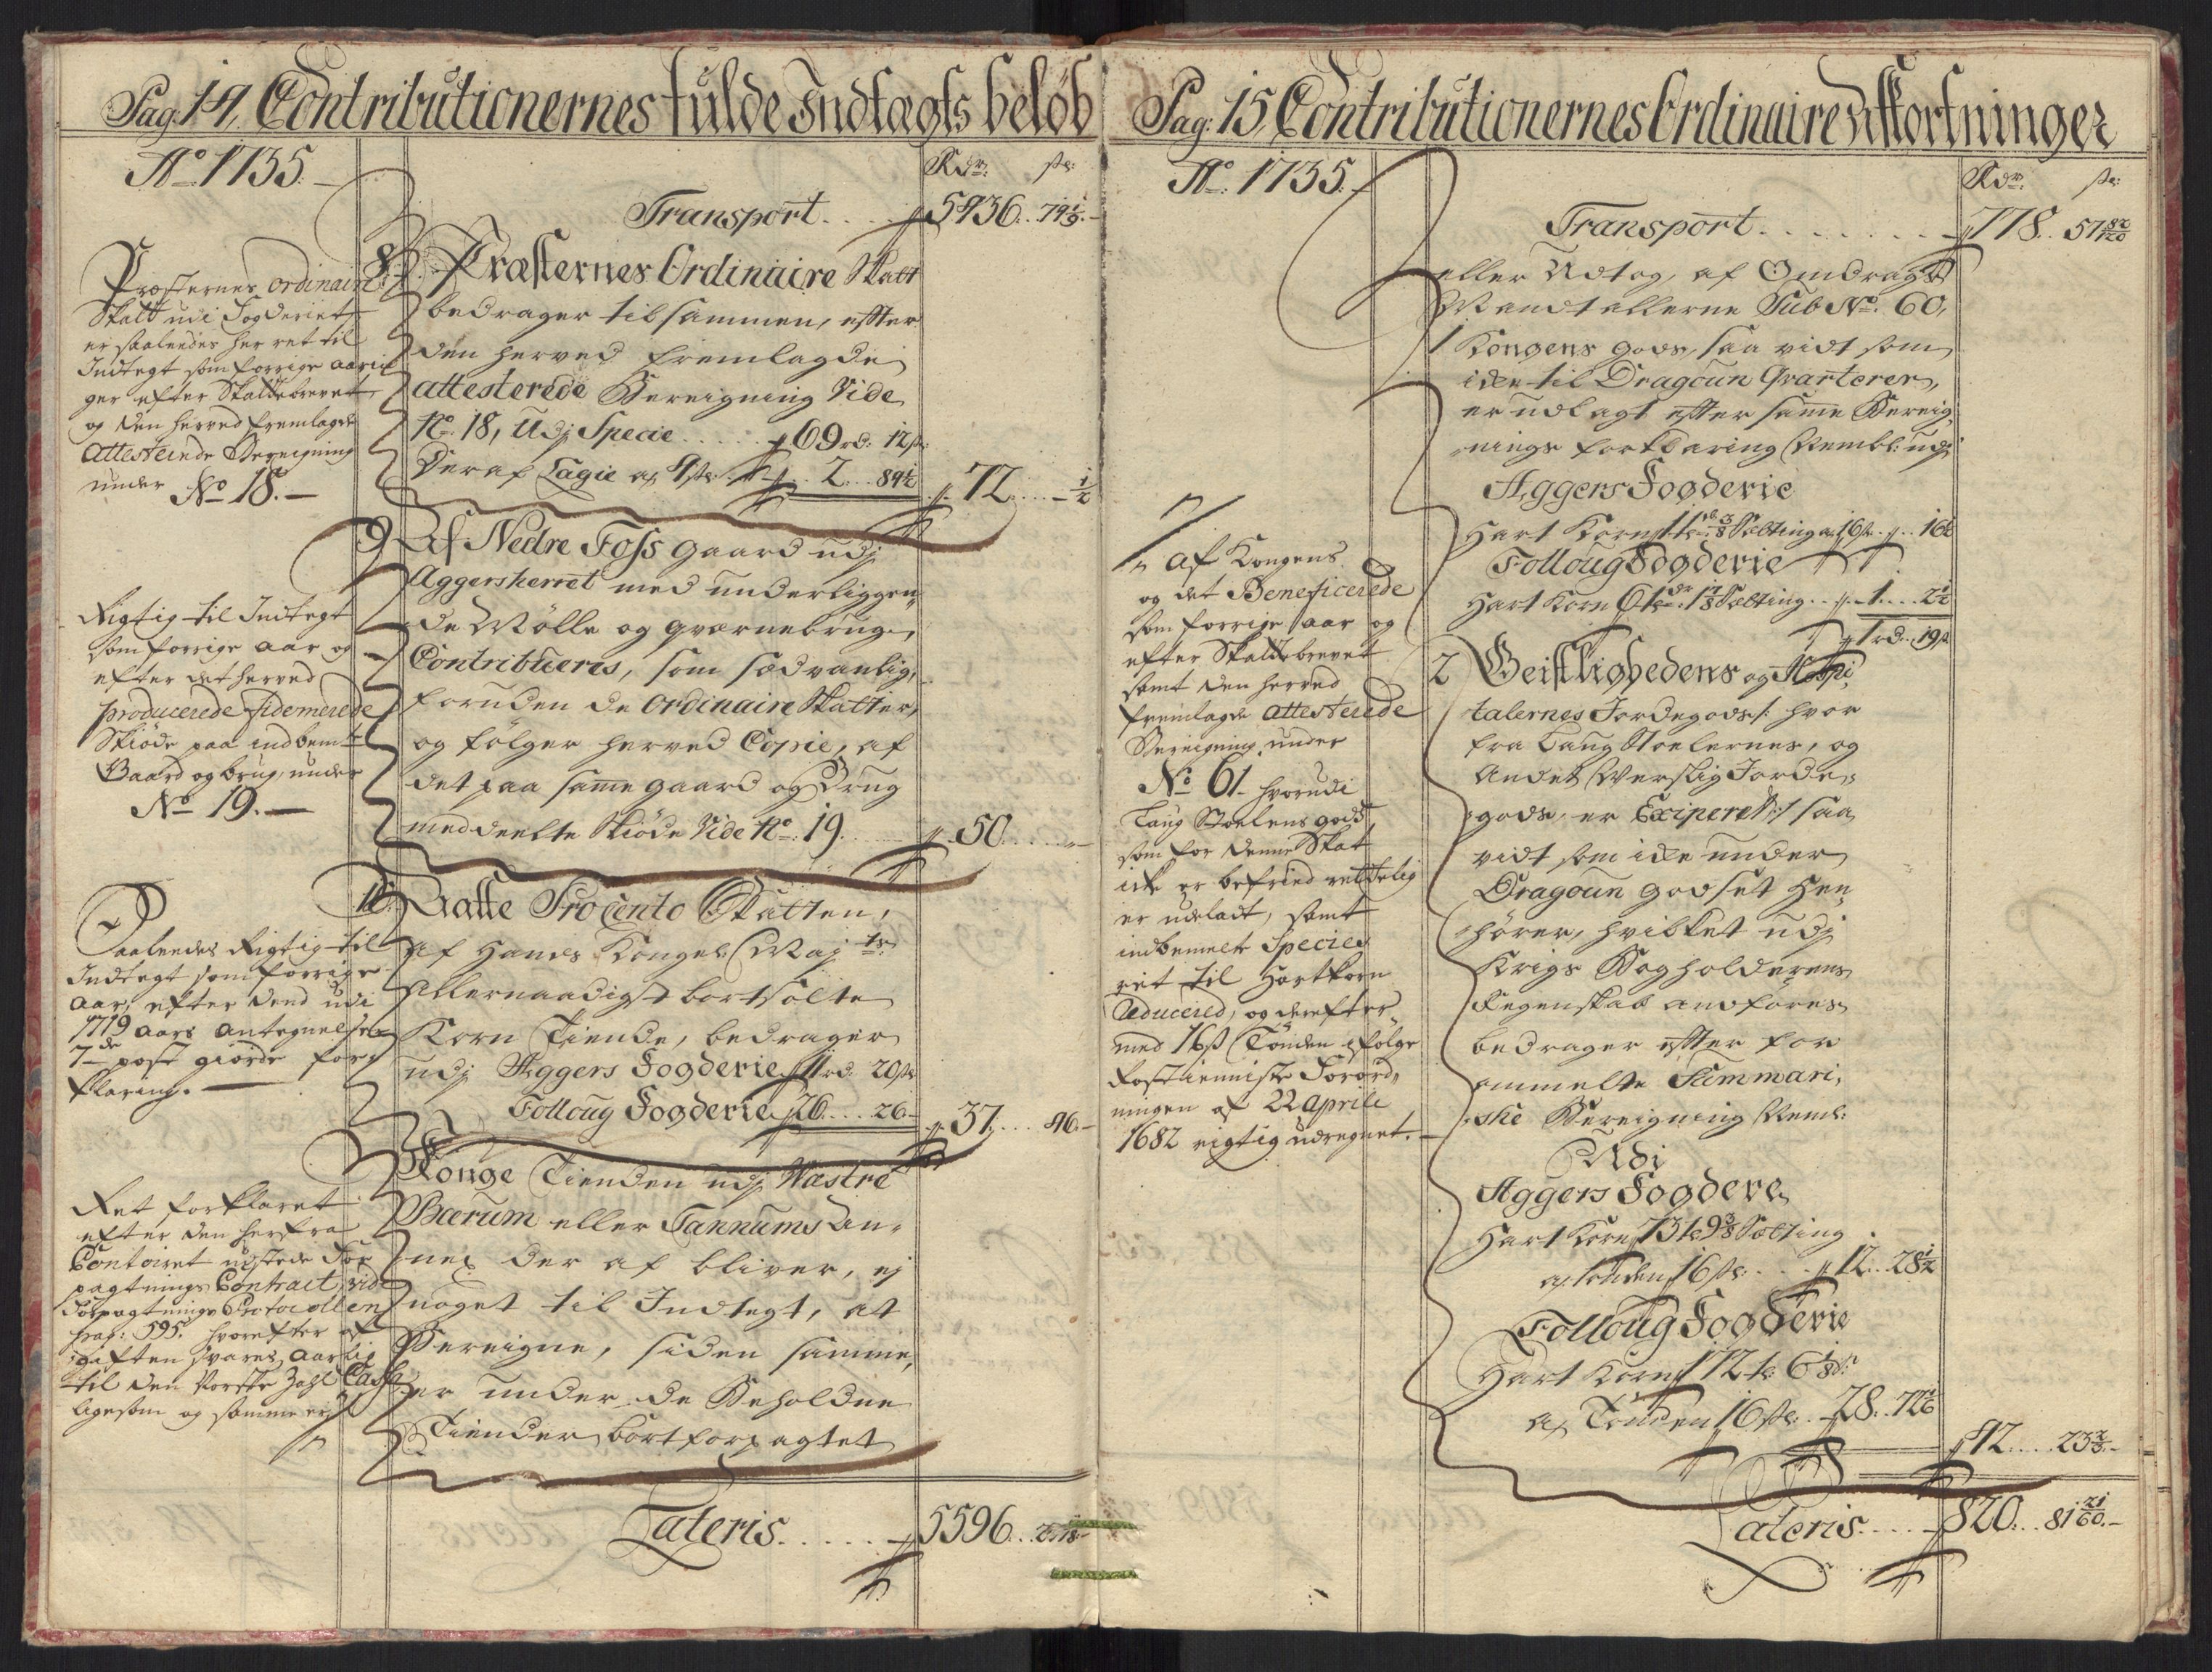 Pag. 14, Contributionernes fulde Indtægts beløb
No. 1735.
Rdr: sk:
Transport . . . . 5436. . 74 1/3.
Præsternes ordinaire
Skatt udi Fogderiet
er saaledes her ret til
Indtegt som forrige aar
efter Skattebrevet
og den herved fremlagde
Attesterede Beregning
under No 18. —
8. Præsternes Ordinaire Skatt
bedrager tilsammen, effter
den herved fremlagde
attesterede Beregning Vide
No. 18, Udj Specie . . . . . 69 rd: 12 sk:
Deraf Lagie a 4 sk: . . 2 . . 84 1/2
72 . . . . - 1/2
Rigtig til Indtegt
som forrige aar og
efter det herved
producerede fidemerede
Skiøde paa indbemte
Gaard og brug, under
No 19. —
9. Af Nedre Foss gaard udj
Aggersherret med underliggen,
de Mølle og qværnebrug,
Contribueris, som sædvanlig,
foruden de Ordinaire Skatter,
og følger herved Copie, af
det paa samme gaard og Brug
meddeelte Skiøde Vide No. 19. . . 50. . . .
Saaledes Rigtig til
Indtegt som forrige
aar, efter dend udi
1719 aars Antegnelser
7de post giorde for,
klaring. —
10. Halfe Procento Skatten,
af Hans Kongel: Maj ts:
Allernaadigst bortsolte
Korn Tiende, bedrager
udj Aggers Fogderie 11 rd. 20 sk:
Follough Fogderie 26 . . . 26 -
37 . . . 46 -
Ret forklaret
efter den herfra
Contoiret udstede For
pagtnings Contract, vide
Forpagtnings Protocollen
pag: 595. hvorefter af
giften svares aarlig
til den Norske Zahl Cassa
ligesom og samme er
Konge Tienden udj Væstre
Bærum eller Tannums An,
nex der af bliver, ej
noget til Indtegt, at
Bereigne, siden samme,
er under de Beholdne
Tiender bortforpagtet
Lateris . . . . . . 5596. .
Pag: 15, Contributionernes Ordinaire Afkortninger
No. 1735.
Rdr: sk:
Transport . . . . . . . . 778. . 57 82/120
eller Udtog, af Omdragts
Mandtallerne Sub No. 60,
1 Kongens gods, saa vidt som
icke til Dragoun Qvarterer,
er udlagt effter samme Bereig,
nings forklaring Nembl: udj
Aggers Fogderie
Hart Korn 1 td 3/8 Sætting a 16 sk . . 16 1/2
Follough Fogderie
Hart Korn 6 td 1 1/8 Sætting . . 1 . . . 2 1/2
1 rd. 19 sk
Af Kongens
og det Beneficerede
som forrige aar og
efter Skattebrevet
samt den herved
fremlagde attesterede
Beregning under
No 61 - hvorudi
Laug Stoelens gods
som for denne Skat
icke er befried rettelig
er udeladt, samt
indbemelte Species
ret til Hartkorn
reducered, og derefter,
med 16 sk Tønden ifølge
Rostienniste Forord,
ningen af 22 Aprili
1682 rigtig udregnet. —
2 Geistlighedens og Hospi,
talernes Jordegods /: hvor
fra Laug Stoelernes, og
Andet Verslig Jorde,
gods, er Exiperet :/ saa
vidt som icke under
Dragoun godset hen,
hører, hvilket udj
Krigs Bogholderens
Regenskab anføres
bedrager effter for
ommelte Summari,
ske Bereigning Neml:
Udi
Aggers Fogderie
Hart Korn 73 td 9 3/8 Sætting
a Tønden 16 sk: . . . 12 . . 28 1/2
Follough Fogderie
Hart Korn 172 td 6 1/8 s:
a Tønden 16 sk: . . 28 . . 72 1/6
42 . . . . 23 2/3. -
Lateris . . . . 820. . . 81 21/60. -